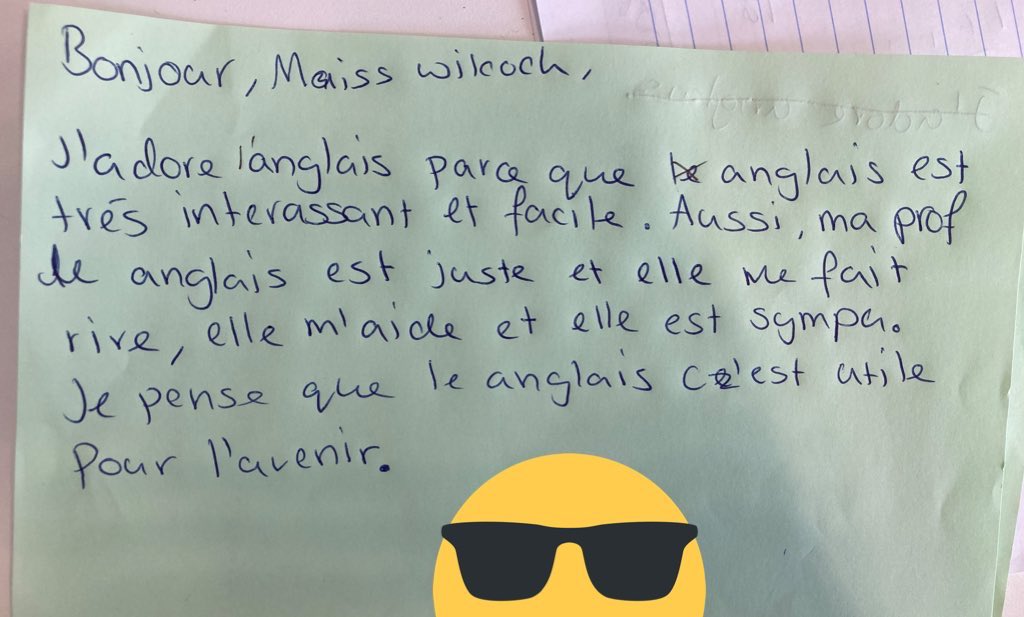 Bonjour, Maiss wilcoch,
J'adore l'anglais parce que anglais est
trés interassant et facile. Aussi, ma prof
de anglais est juste et elle me fait
rire, elle m'aide et elle est sympa.
Je pense que le anglais c'est utile
pour l'avenir.